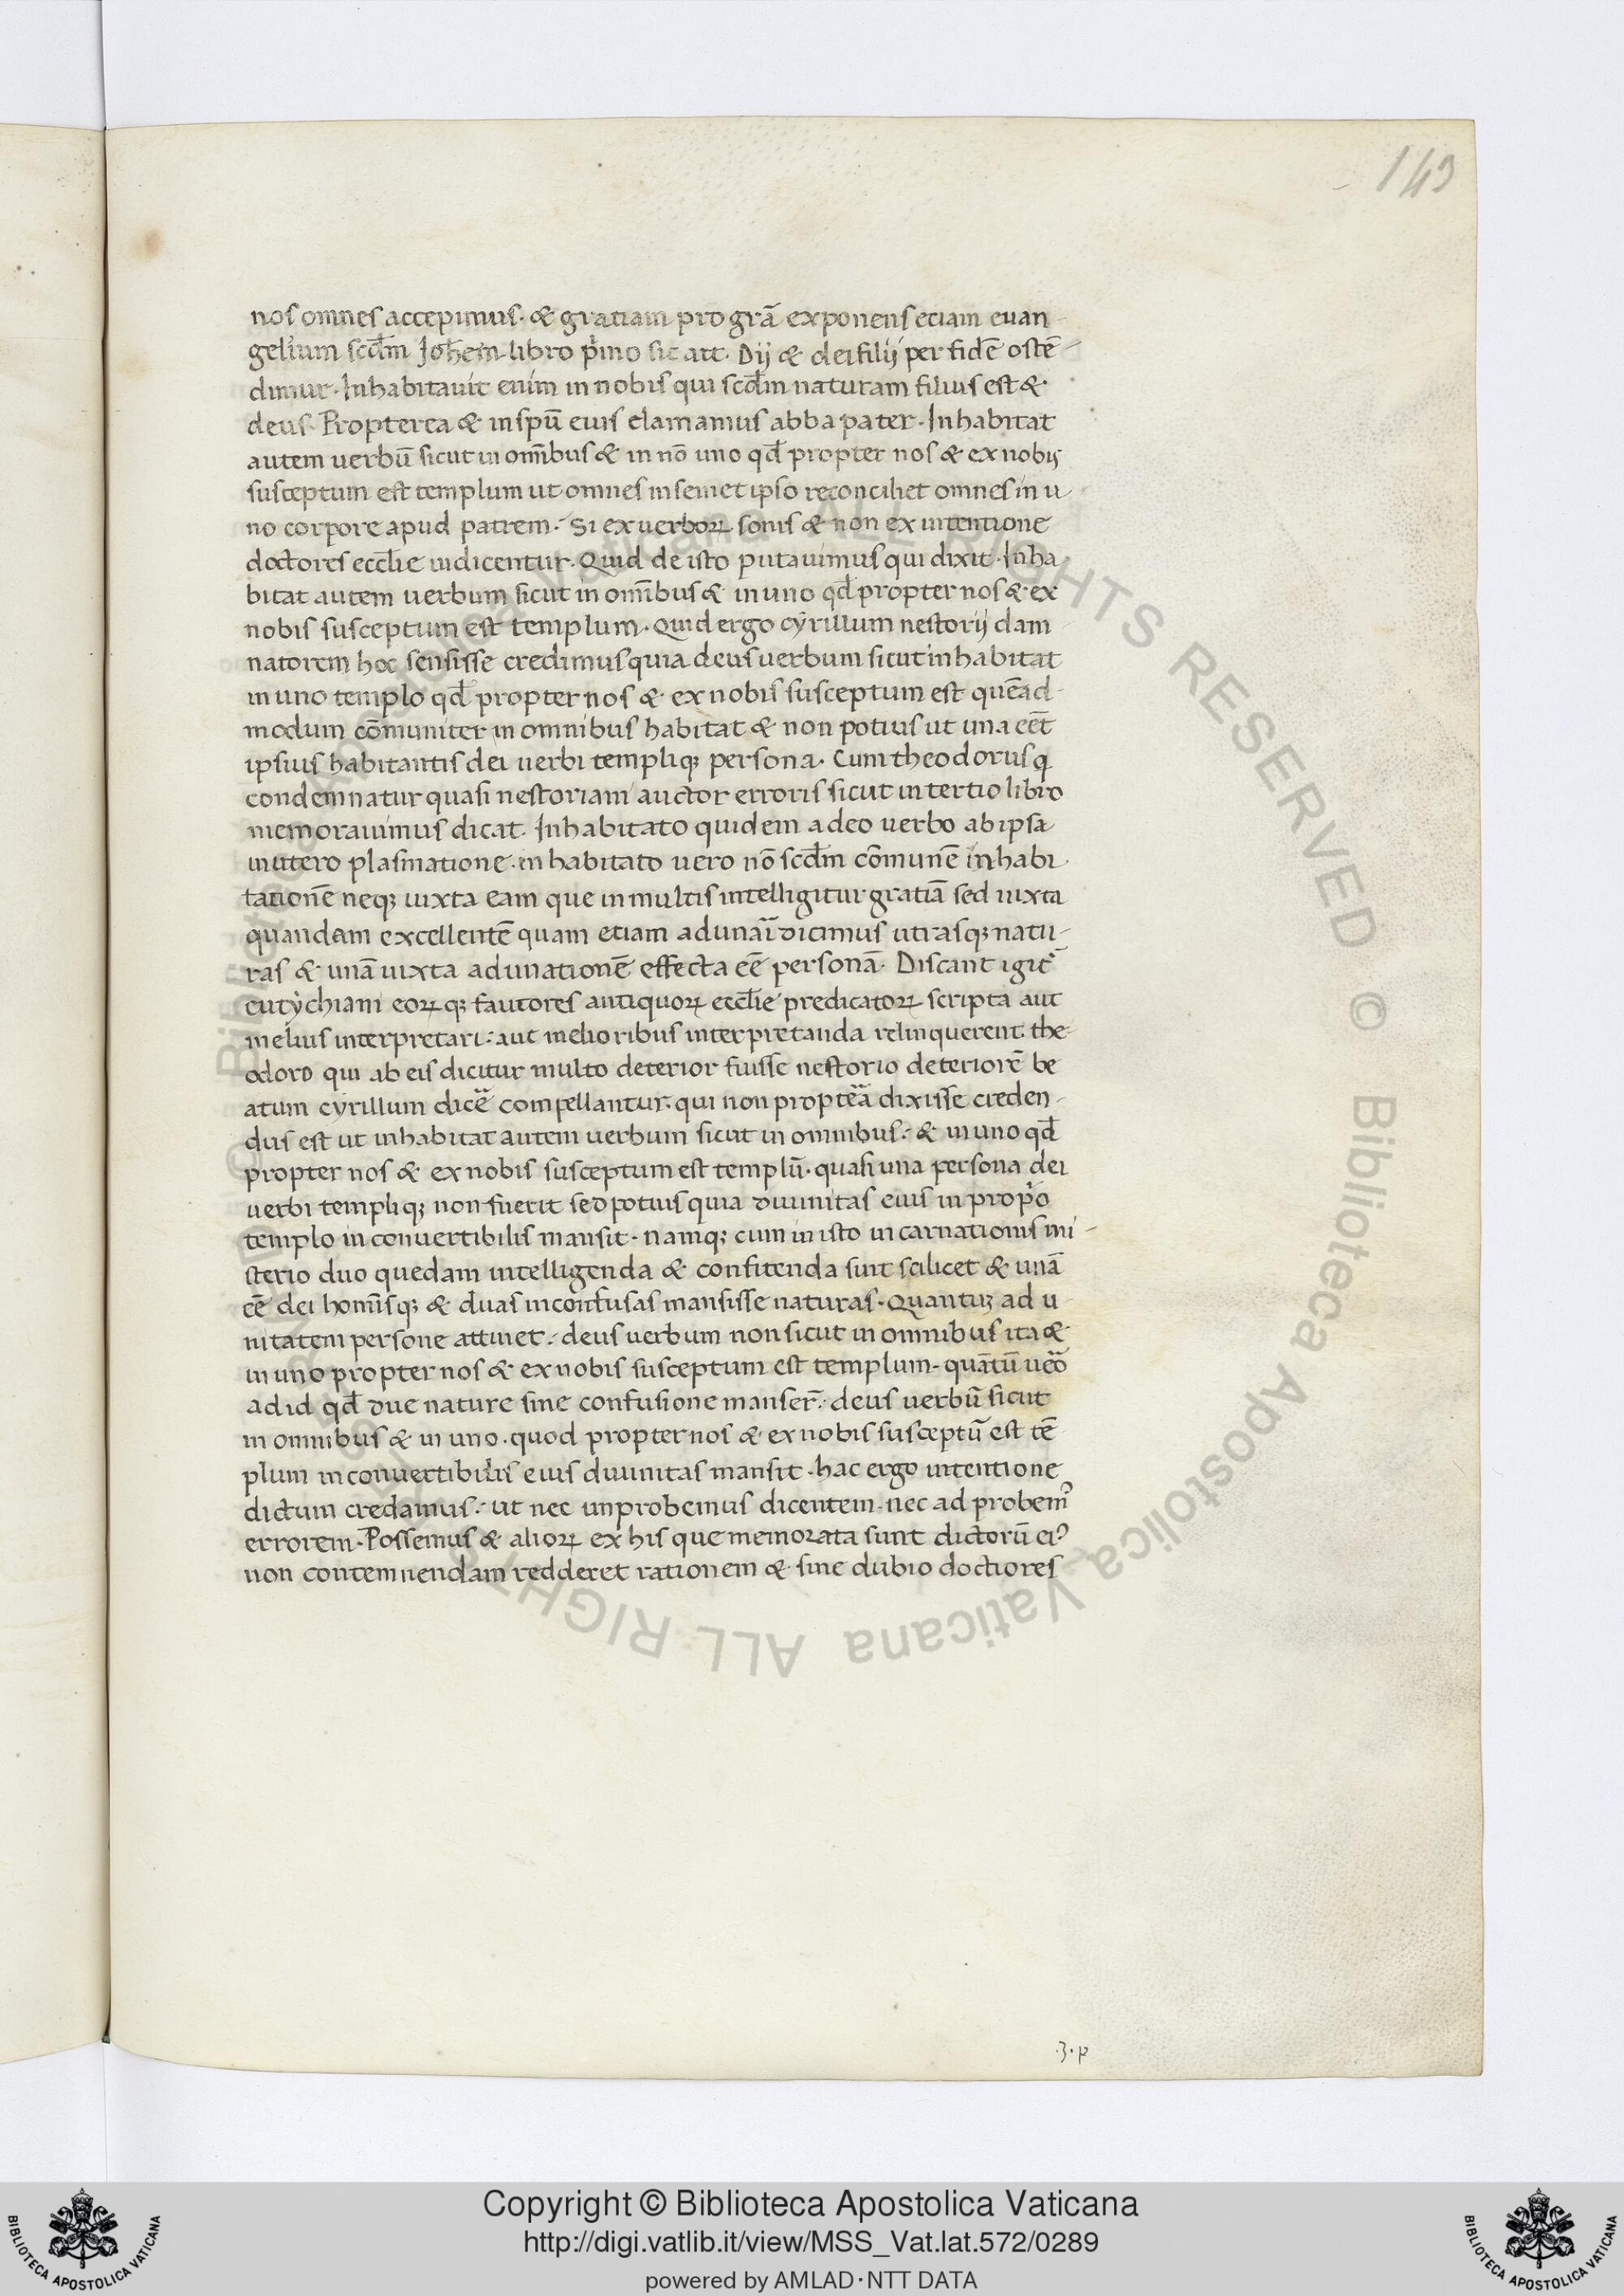 143
nos omnes accepimus. & gratiam pro grã exponens eciam euan-
gelium scd̄m Joħem libro p̃mo sic ait. Dij & dei filij per fidẽ ostẽ-
dimur. Inhabitauit enim in nobis qui scd̄m naturam filius est &
deus. Propterea & in spũ eius clamamus abba pater. Inhabitat
autem uerbũ sicut in om̃ibus & in nõ uno qd̄ propter nos & ex nobis
susceptum est templum ut omnes in semet ipso reconciliet omnes in u
no corpore apud patrem. Si ex uerboꝝ sonis & non ex intentione
doctores eccl̄ie iudicentur. Quid de isto putauimus qui dixit. Inha
bitat autem uerbum sicut in om̃ibus & in uno qd̄ propter nos & ex
nobis susceptum est templum. Quid ergo cyrillum nestorij dam
natorem hoc sensisse credimus quia deus uerbum sicut inhabitat
in uno templo qd̄ propter nos & ex nobis susceptum est quẽad-
modum cõmuniter in omnibus habitat & non potius ut una eẽt
ipsius habitantis dei uerbi templiqꝫ persona. Cum theodorus q
condemnatur quasi nestoriani auctor erroris sicut in tertio libro
memorauimus dicat. Inhabitato quidem a deo uerbo ab ipsa
in utero plasmatione. in habitato uero nõ scd̄m cõmunẽ inhabi
tationẽ neqꝫ iuxta eam que in multis intelligitur gratiã sed iuxta
quandam excellentẽ quam etiam adunar̃i dicimus utrasqꝫ natu-
ras & unã iuxta adunationẽ effecta eẽ personã. Discant igit̃
eutychiani eoꝝqꝫ fautores antiquoꝝ eccl̄ie predicatoꝝ scripta aut
melius interpretari: aut melioribus interpretanda relinquerent. the-
odoro qui ab eis dicitur multo deterior fuisse nestorio deteriorẽ be
atum cyrillum dicẽ compellantur. qui non proptẽa dixisse creden-
dus est ut inhabitat autem uerbum sicut in omnibus. & in uno qd̄
propter nos & ex nobis susceptum est templũ. quasi una persona dei
uerbi templiqꝫ non fuerit sed potius quia diuinitas eius in prop̃o
templo inconuertibilis mansit. namqꝫ cum in isto incarnationis mi-
sterio duo quedam intelligenda & confitenda sint scilicet & unã
eẽ dei homĩsqꝫ & duas inconfusas mansisse naturas. Quantuꝫ ad u-
nitatem persone attinet. deus uerbum non sicut in omnibus ita &
in uno propter nos & ex nobis susceptum est templum. quãtũ uẽo
ad id qd̄ due nature sine confusione manser̃. deus uerbũ sicut
in omnibus & in uno. quod propter nos & ex nobis susceptũ est tẽ
plum inconuertibilis eius diuinitas mansit. hac ergo intentione
dictum credamus. ut nec improbemus dicentem. nec ad probemꝰ
errorem. Possemus & alioꝝ ex his que memorata sunt dictorũ eiꝰ
non contemnendam redderet rationem & sine dubio doctiores
.3.p
Copyright © Biblioteca Apostolica Vaticana
http://digi.vatlib.it/view/MSS_Vat.lat.572/0289
powered by AMLAD·NTT DATA